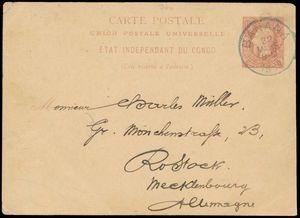 CARTE POSTALE
UNION POSTALE UNIVERSELLE
ÉTAT INDÉPENDANT DU CONGO
(Côté réservé à l'adresse.)
BANANA
Monsieur Charles Müller.
Gr. Mönchenstraße, 23,
Rostock.
Mecklenbourg
Allemagne